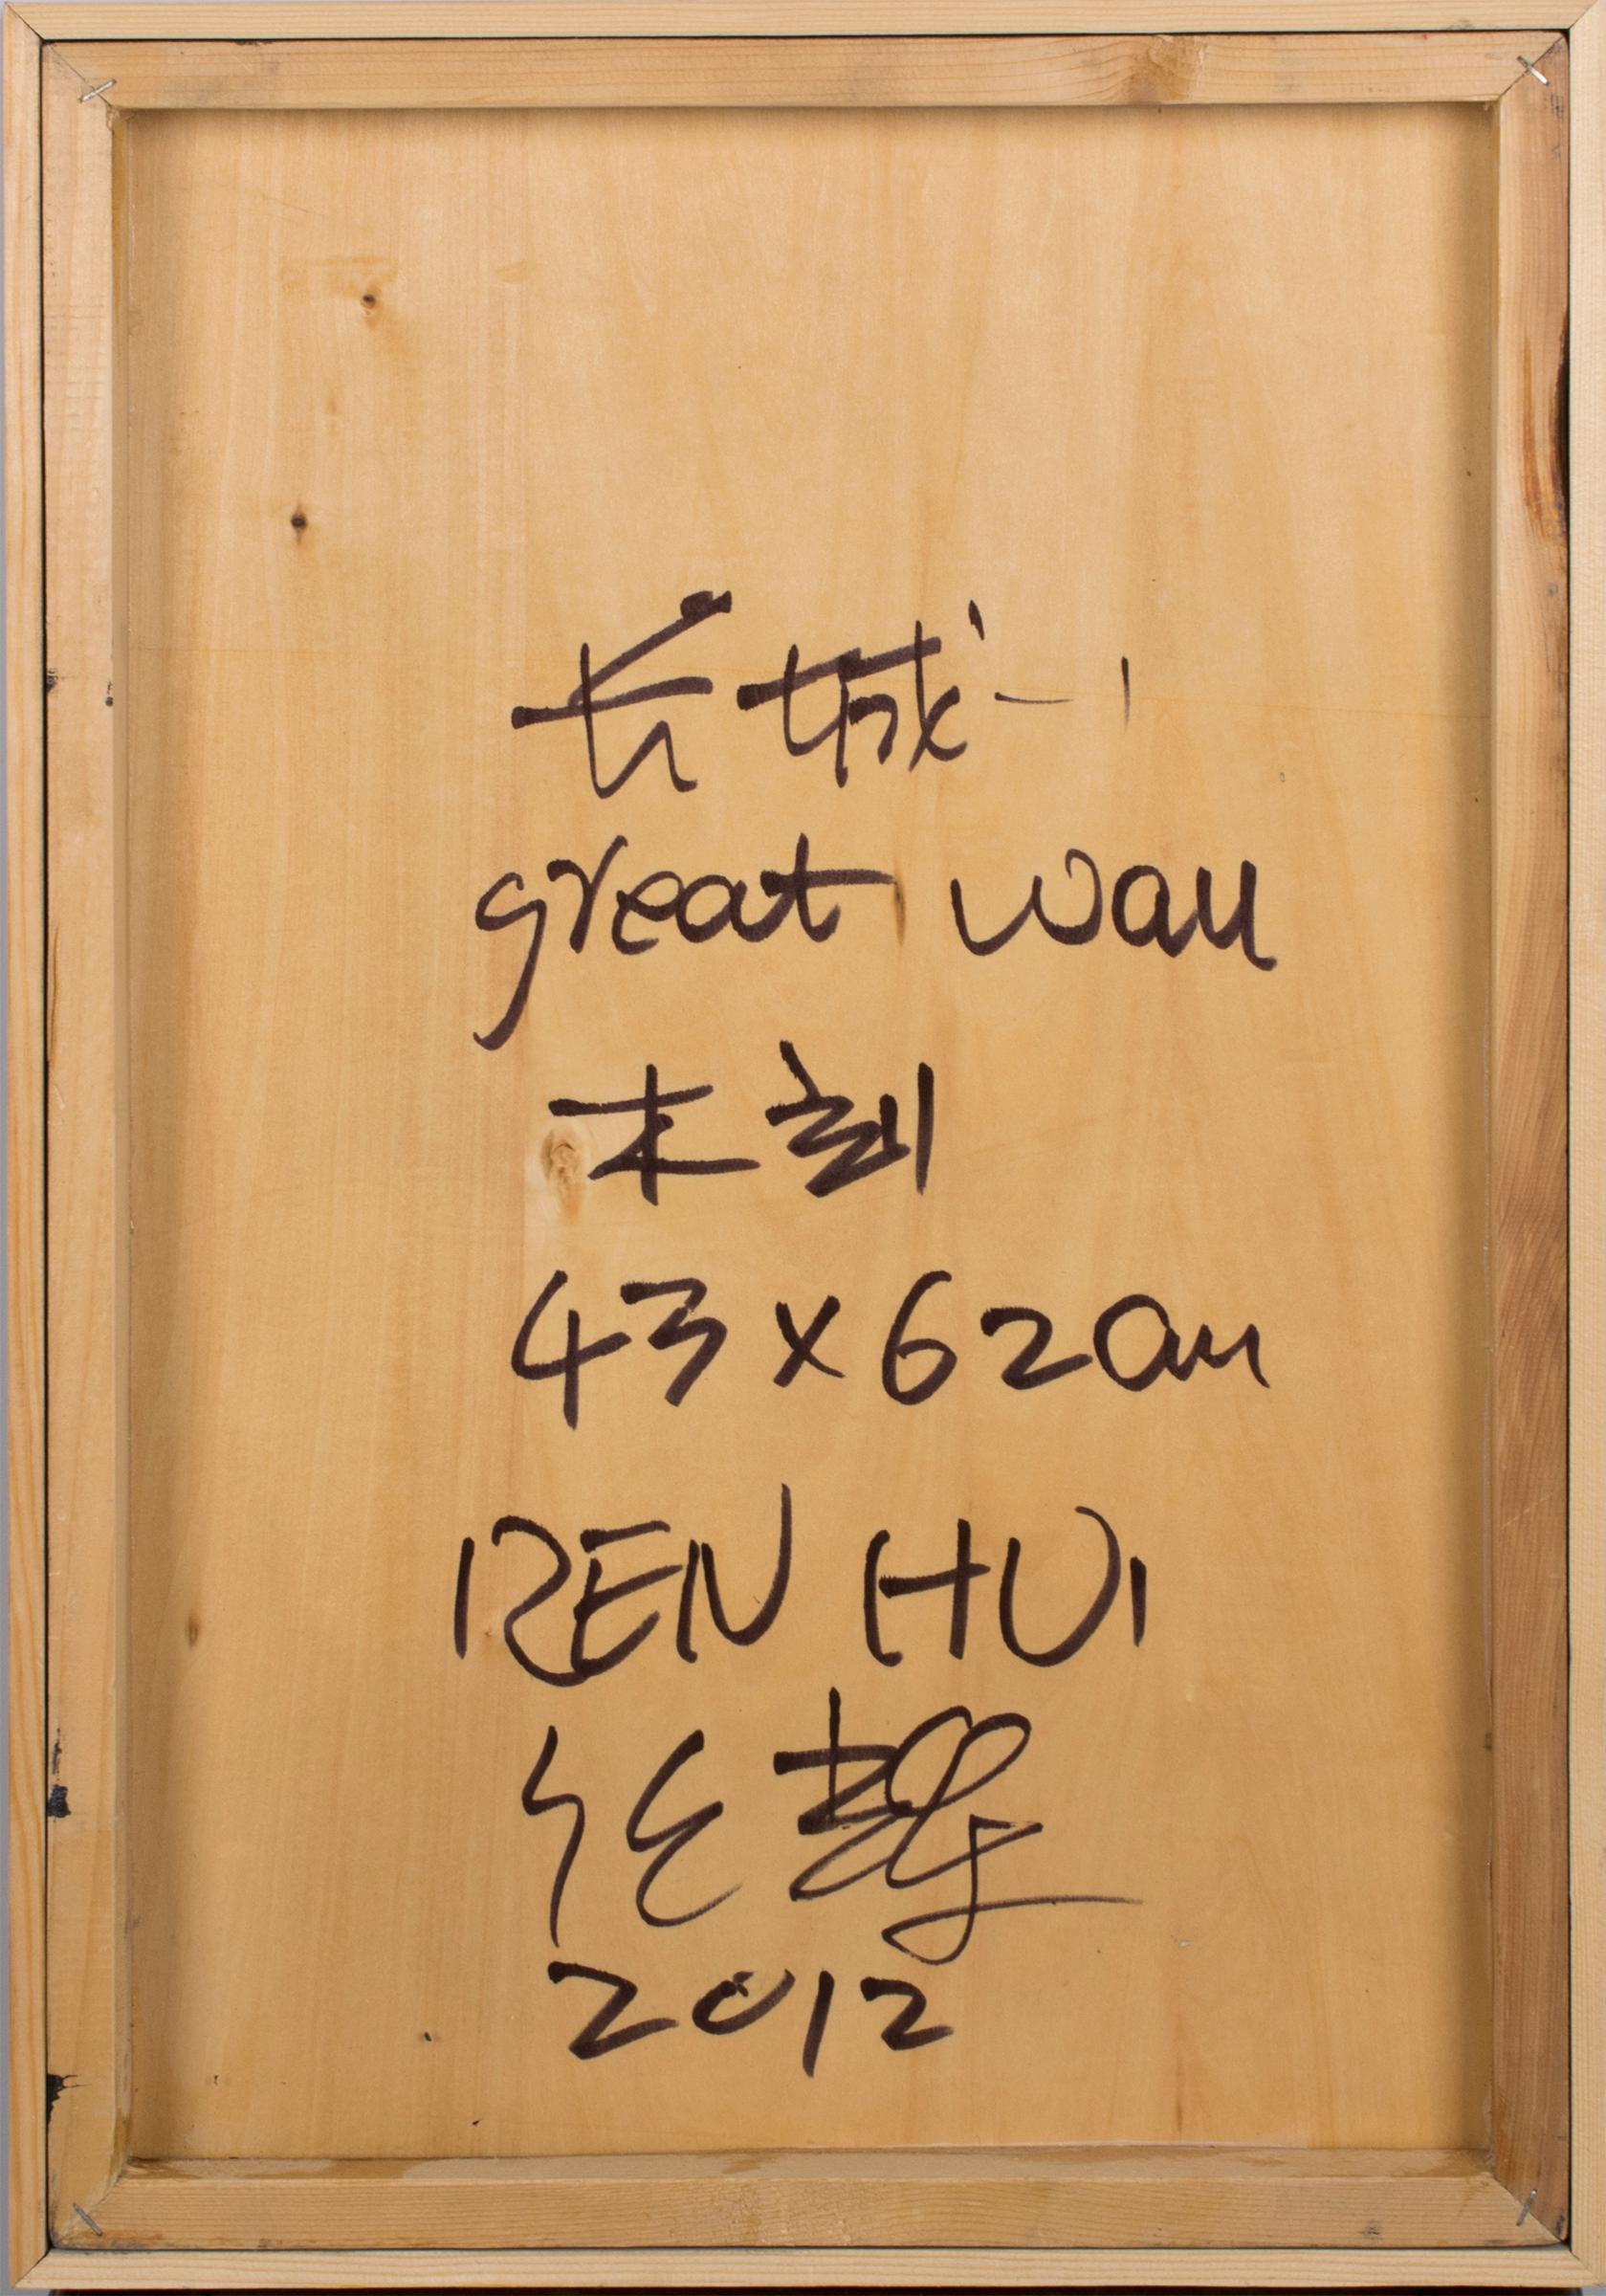 长城-1
great wall
木刻
43x62cm
REN HUI
任辉
2012